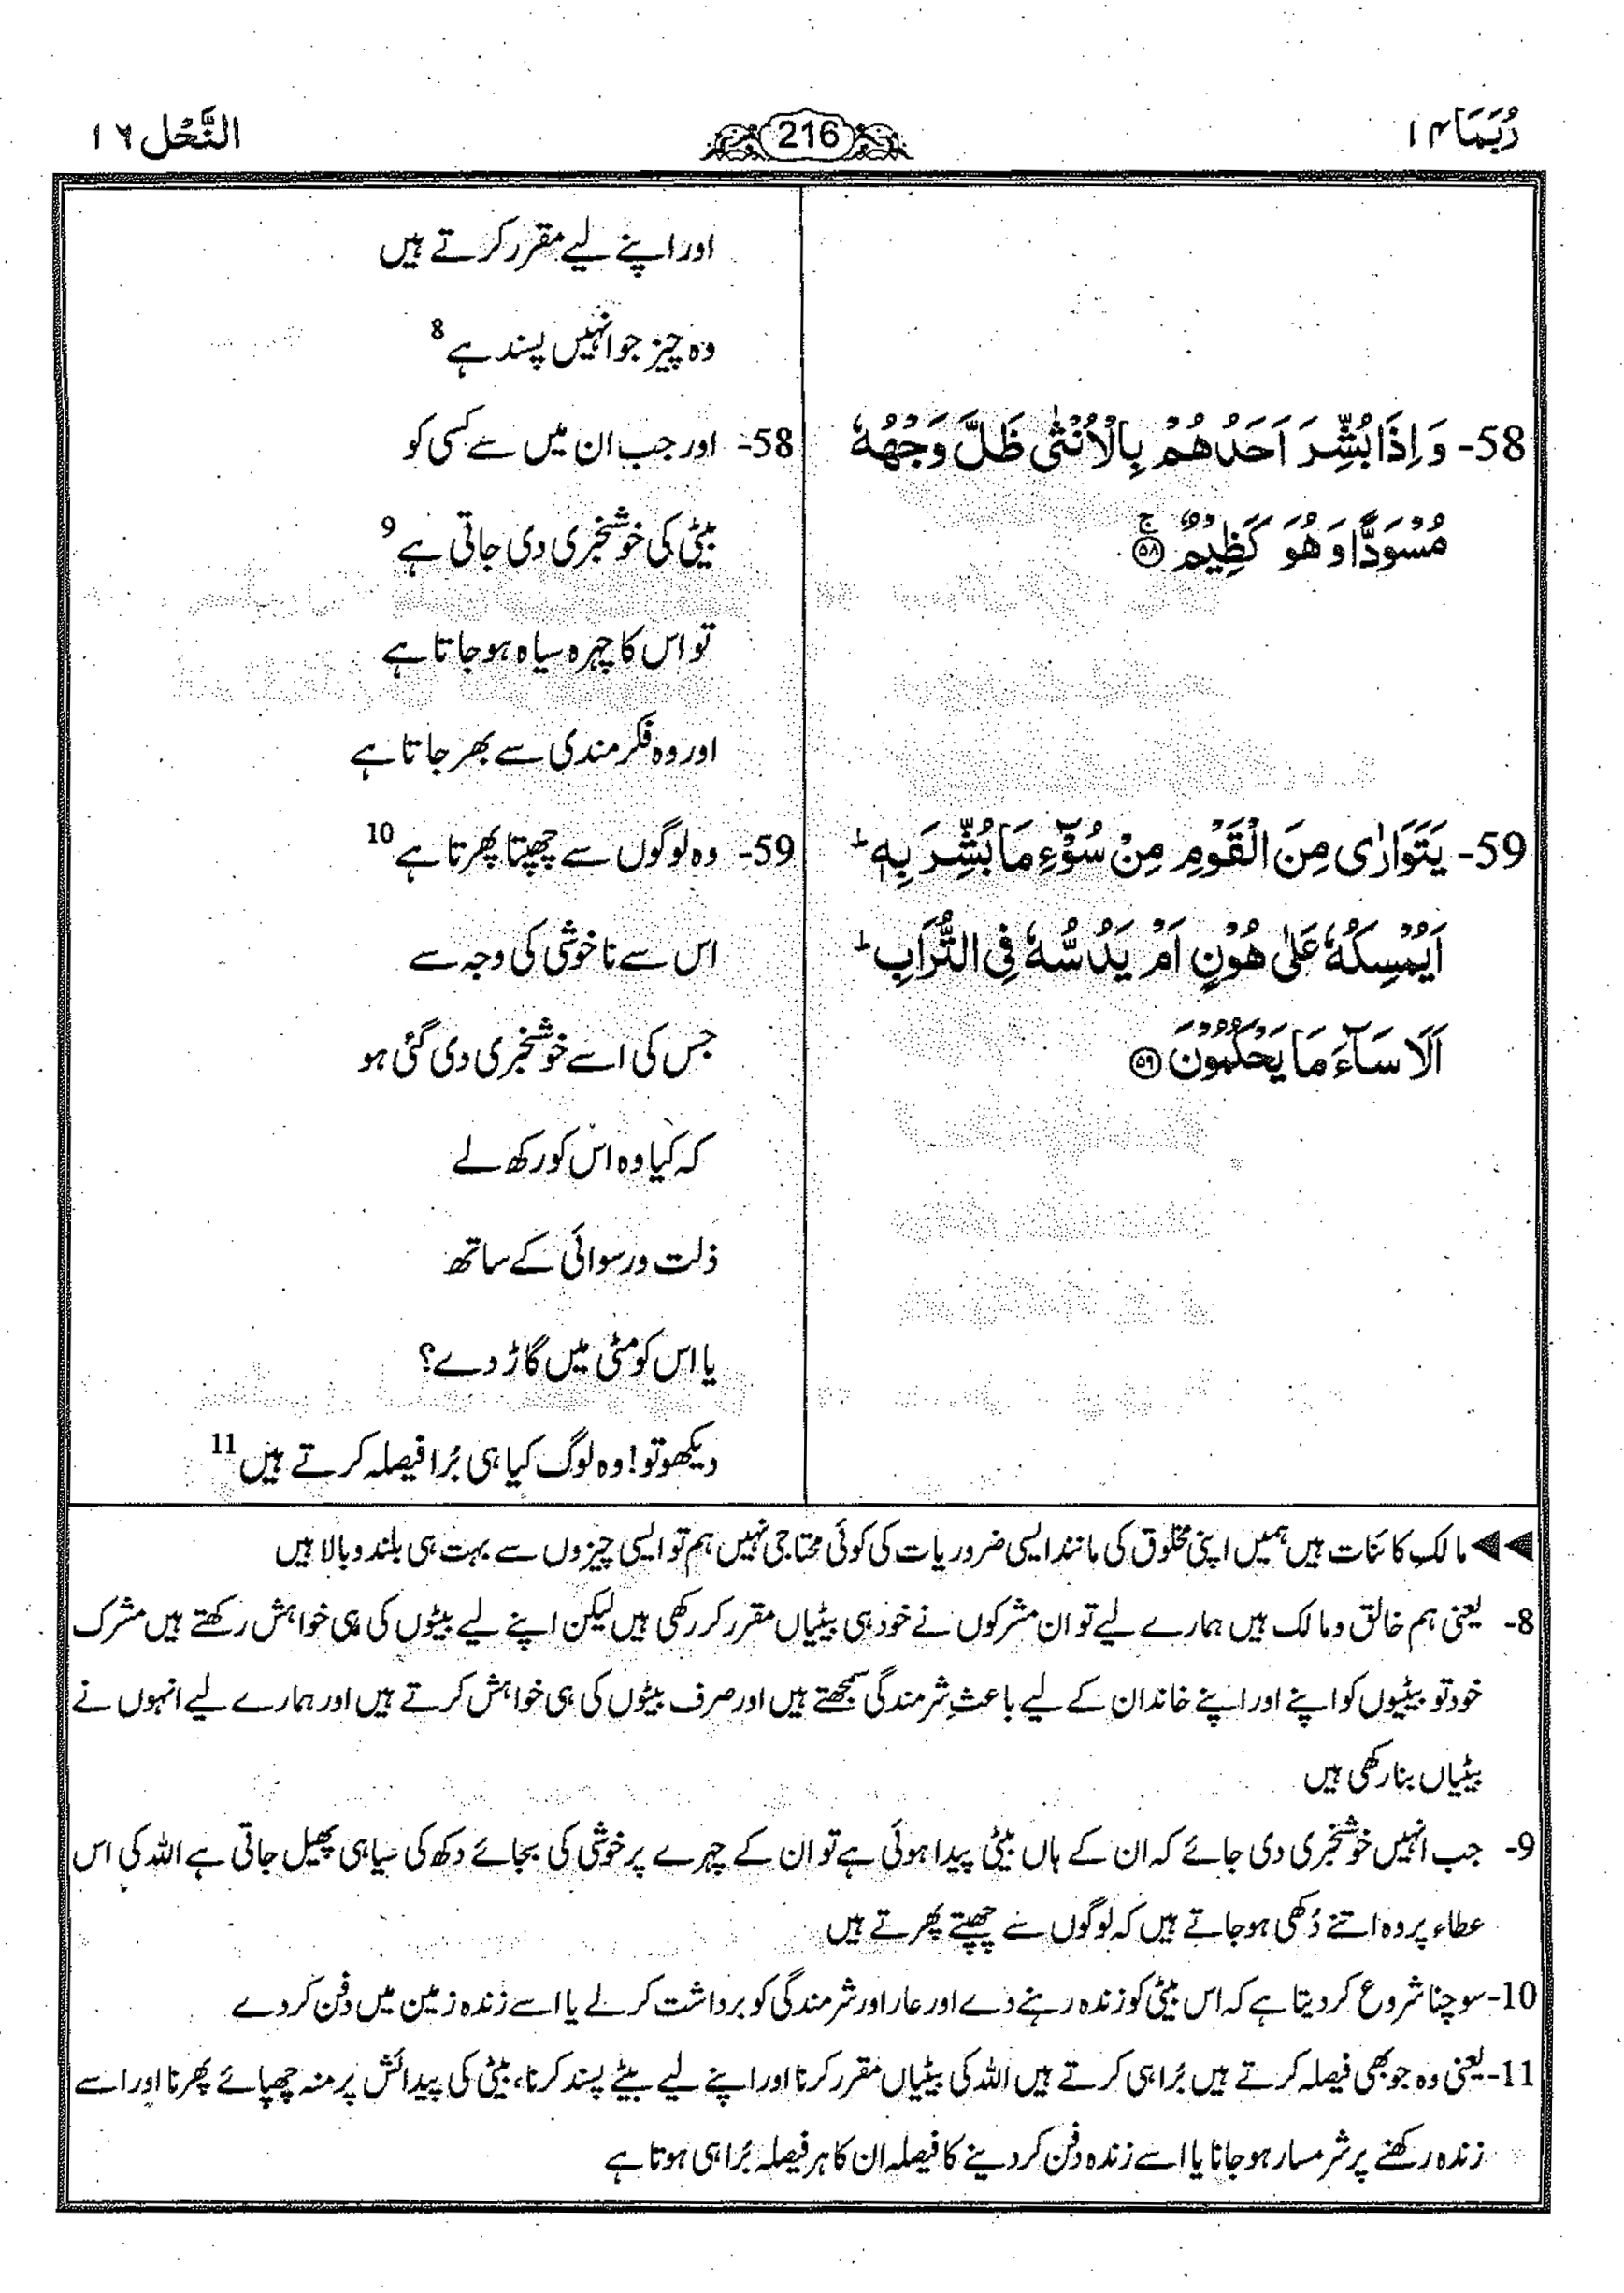 رُبَمَا ۱۴
216
النَّحْل ۱۶
58- وَ اِذَا بُشِّرَ اَحَدُهُمْ بِالْاُنْثٰى ظَلَّ وَجْهُهٗ
مُسْوَدًّا وَّ هُوَ كَظِيْمٌ ۚ ۵۸
59- يَتَوَارٰى مِنَ الْقَوْمِ مِنْ سُوْٓءِ مَا بُشِّرَ بِهٖ ؕ
اَيُمْسِكُهٗ عَلٰى هُوْنٍ اَمْ يَدُسُّهٗ فِى التُّرَابِ ؕ
اَلَا سَآءَ مَا يَحْكُمُوْنَ ۵۹
اور اپنے لیے مقرر کرتے ہیں
وہ چیز جو انہیں پسند ہے 8
58- اور جب ان میں سے کسی کو
بیٹی کی خوشخبری دی جاتی ہے 9
تو اس کا چہرہ سیاہ ہو جاتا ہے
اور وہ فکر مندی سے بھر جاتا ہے
59- وہ لوگوں سے چھپتا پھرتا ہے 10
اس سے ناخوشی کی وجہ سے
جس کی اسے خوشخبری دی گئی ہو
کہ کیا وہ اس کو رکھ لے
ذلت ورسوائی کے ساتھ
یا اس کو مٹی میں گاڑ دے؟
دیکھو تو! وہ لوگ کیا ہی بُرا فیصلہ کرتے ہیں 11
◄◄ مالکِ کائنات ہیں ہمیں اپنی مخلوق کی مانند ایسی ضروریات کی کوئی محتاجی نہیں ہم تو ایسی چیزوں سے بہت ہی بلند وبالا ہیں
8- یعنی ہم خالق ومالک ہیں ہمارے لیے تو ان مشرکوں نے خود ہی بیٹیاں مقرر کر رکھی ہیں لیکن اپنے لیے بیٹوں کی ہی خواہش رکھتے ہیں مشرک
خود تو بیٹیوں کو اپنے اور اپنے خاندان کے لیے باعثِ شرمندگی سمجھتے ہیں اور صرف بیٹوں کی ہی خواہش کرتے ہیں اور ہمارے لیے انہوں نے
بیٹیاں بنا رکھی ہیں
9- جب انہیں خوشخبری دی جائے کہ ان کے ہاں بیٹی پیدا ہوئی ہے تو ان کے چہرے پر خوشی کی بجائے دکھ کی سیاہی پھیل جاتی ہے اللہ کی اس
عطاء پر وہ اتنے دُکھی ہو جاتے ہیں کہ لوگوں سے چھپتے پھرتے ہیں
10- سوچنا شروع کر دیتا ہے کہ اس بیٹی کو زندہ رہنے دے اور عار اور شرمندگی کو برداشت کر لے یا اسے زندہ زمین میں دفن کر دے
11- یعنی وہ جو بھی فیصلہ کرتے ہیں بُرا ہی کرتے ہیں اللہ کی بیٹیاں مقرر کرنا اور اپنے لیے بیٹے پسند کرنا، بیٹی کی پیدائش پر منہ چھپائے پھرنا اور اسے
زندہ رکھنے پر شرمسار ہو جانا یا اسے زندہ دفن کر دینے کا فیصلہ ان کا ہر فیصلہ بُرا ہی ہوتا ہے